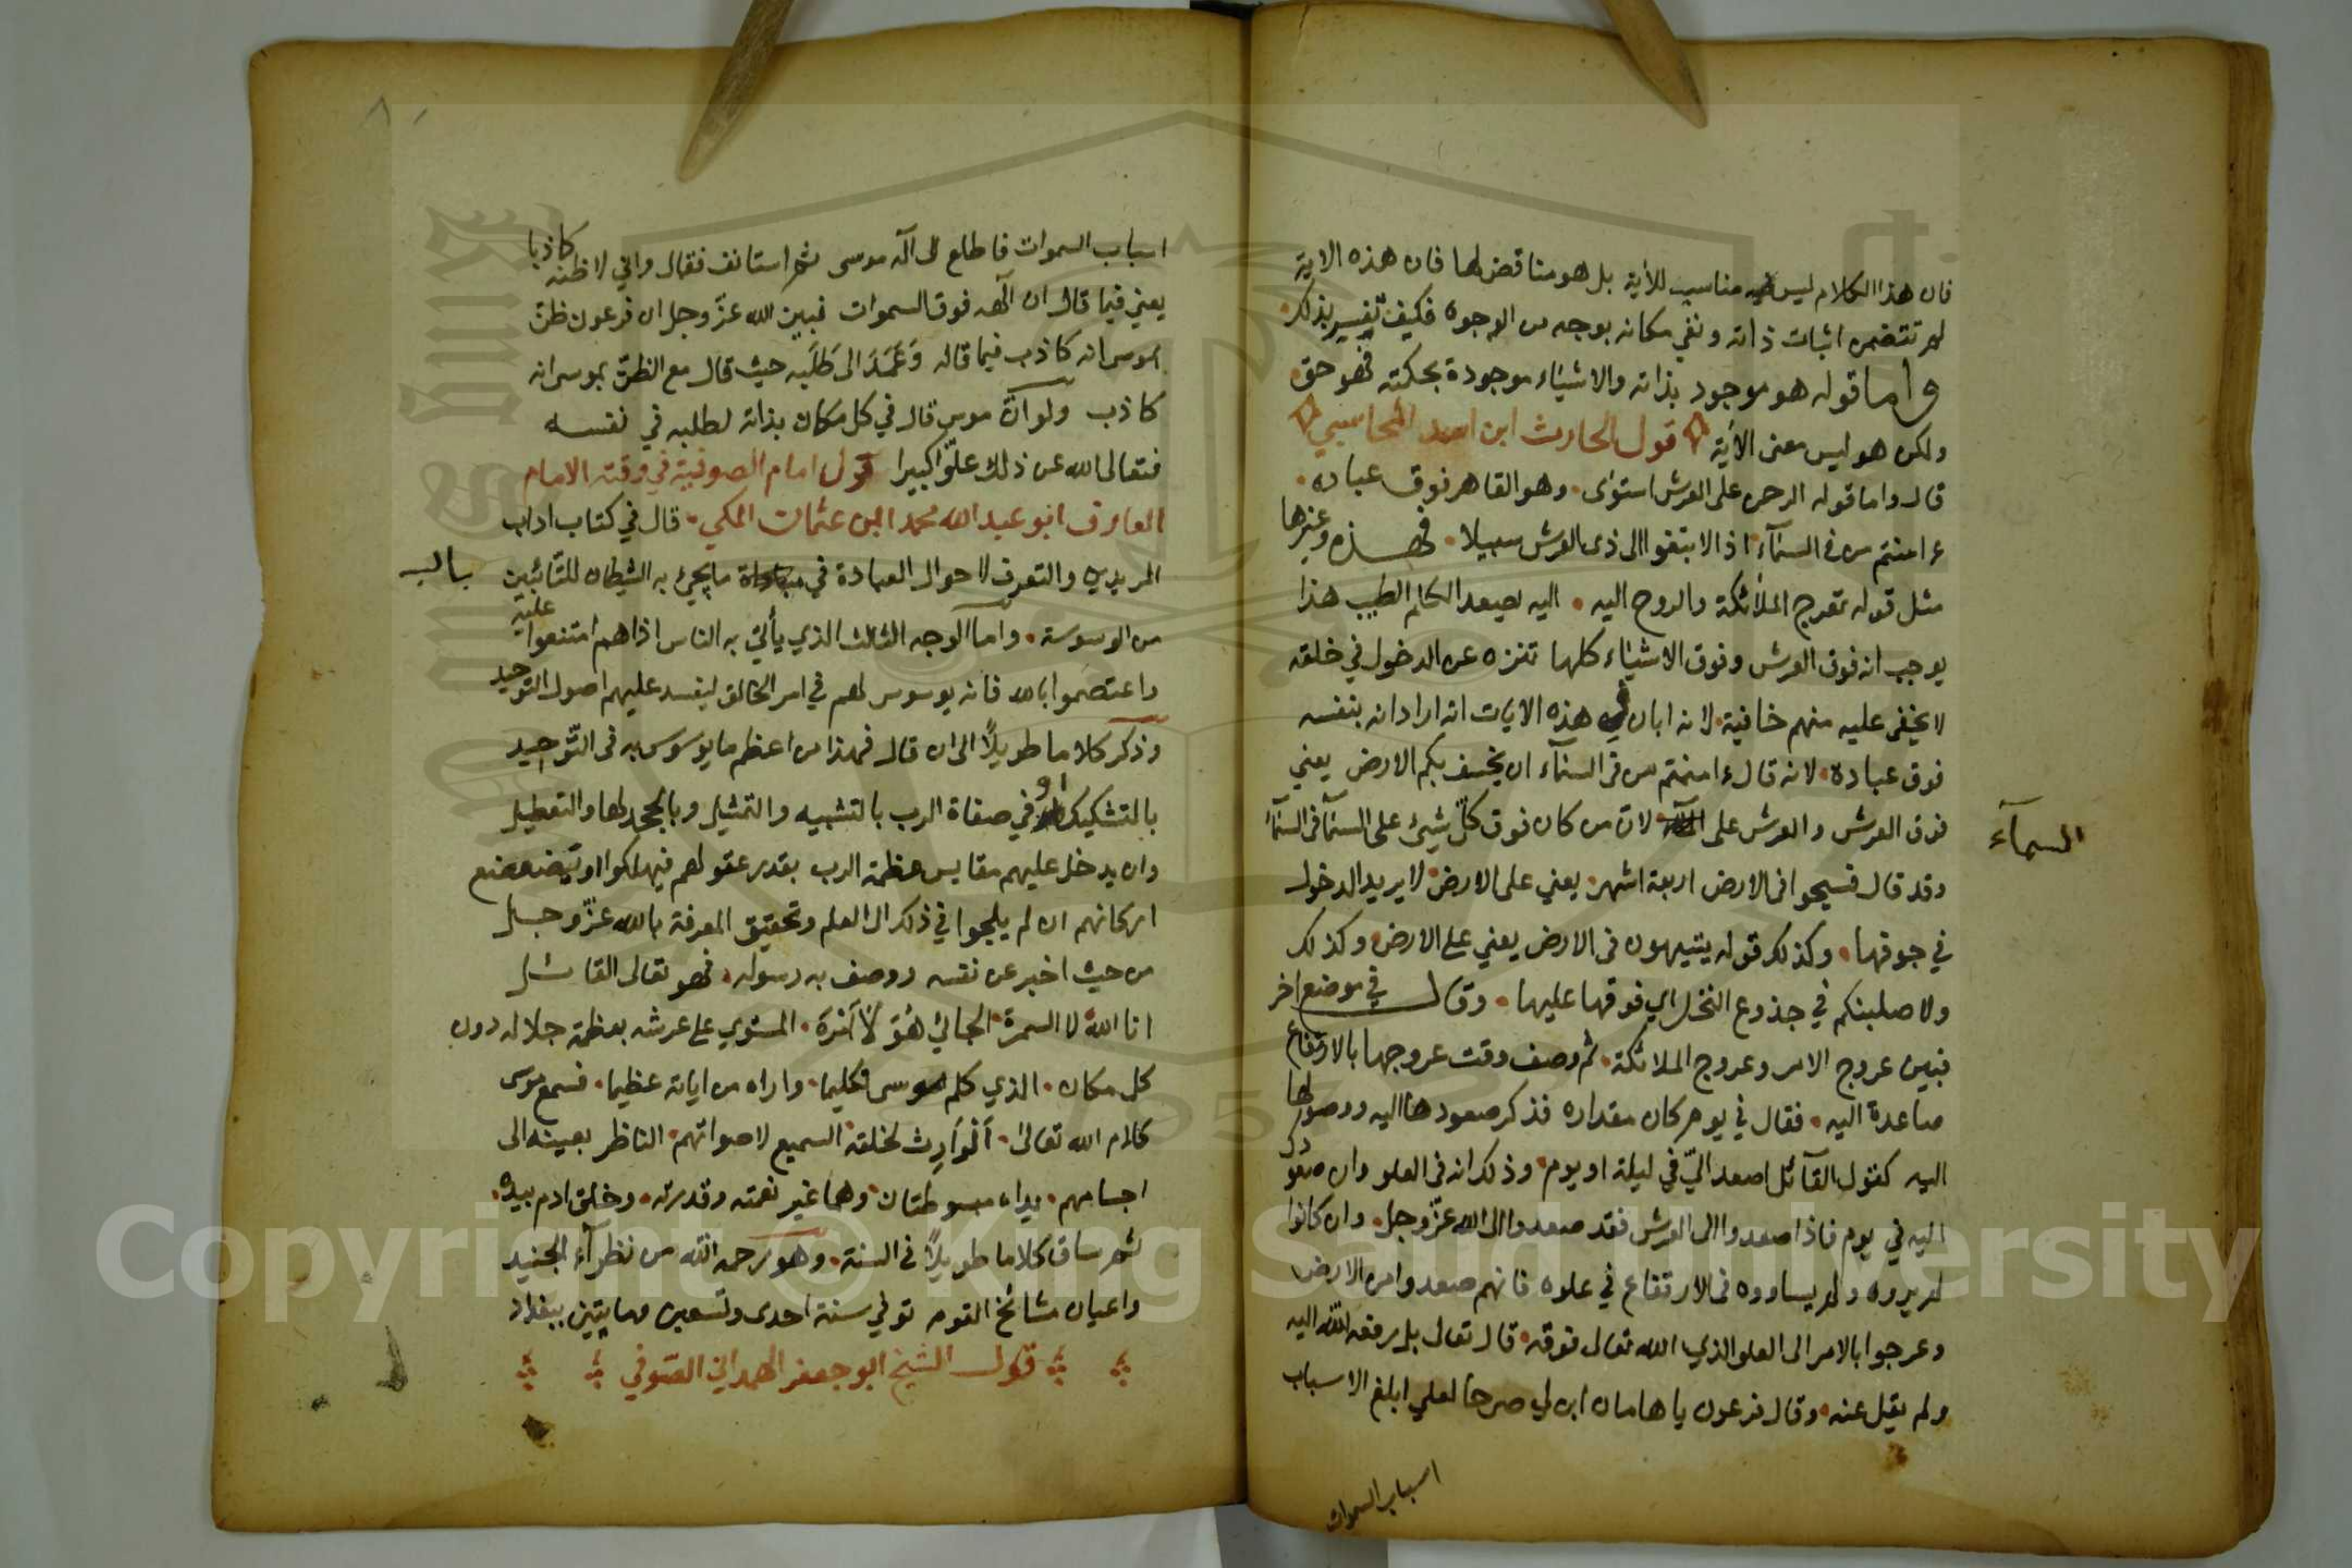 فان هذا الكلام ليس مناسب للآية بل هو مناقض لها فان هذه الاية
لم تتضمن اثبات ذاته ونفي مكانه بوجه من الوجوه فكيف تفسير بذلك
واما قوله هو موجود بذاته والاشيآء موجودة بحكمته فهو حق
ولكن هو ليس معنى الآية قول الحارث ابن اسد المحاسبي
قال واما قوله الرحمن على العرش استوى وهو القاهر فوق عباده
ءامنتم من في السمآء اذا لابتغوا الى ذي العرش سبيلا فهذه وغيرها
مثل قوله تعرج الملائكة والروح اليه اليه يصعد الكلم الطيب هذا
يوجب انه فوق العرش وفوق الاشيآء كلها تنزه عن الدخول في خلقه
لا يخفى عليه منهم خافية لانه ابان في هذه الايات انه اراد انه بنفسه
فوق عباده لانه قال ءامنتم من في السمآء ان يخسف بكم الارض يعني
فوق العرش والعرش على لان من كان فوق كل شيئ على السمآ في السمآء
السمآء
وقد قال فسيحوا في الارض اربعة اشهر يعني على الارض لا يريد الدخول
في جوفها وكذلك قوله يتيهون في الارض يعني على الارض وكذلك
ولاصلبنكم في جذوع النخل اي فوقها عليها وقال في موضع اخر
فبين عروج الامر وعروج الملائكة ثم وصف وقت عروجها بالارتفاع
صاعدة اليه فقال في يوم كان مقداره فذكر صعودها اليه ووصولها
اليه كقول القآئل اصعد اليّ في ليلة او يوم وذلك انه في العلو وان صعودك
اليه في يوم فاذا صعدوا الى العرش فقد صعدوا الى الله عزّ وجل وان كانوا
لم يروه ولم يساووه في الارتفاع في علوه فانهم صعدوا من الارض
وعرجوا بالامر الى العلو الذي الله تعالى فوقه قال تعالى بل رفعه الله اليه
ولم يقل عنه وقال فرعون يا هامان ابن لي صرحا لعلي ابلغ الاسباب
اسباب السموات
اسباب السموات فاطلع الى اله موسى ثم استانف فقال واني لاظنه كاذبا
يعني فيما قال ان الهه فوق السموات فبين الله عزّ وجل ان فرعون ظنّ
بموسى انه كاذب فيما قاله وَعَمَدَ الى طَلَبِه حيث قال مع الظنّ بموسى انه
كاذب ولو انّ موسى قال في كل مكان بذاته لطلبه في نفسه
فتعالى الله عن ذلك علوّا كبيرا قول امام الصوفية في وقته الامام
العارف ابو عبد الله محمد ابن عثمان المكي قال في كتاب اداب
المريدين والتعرف لاحوال العبادة في ما يجيئ به الشيطان للتآئبين
باب
من الوسوسة واما الوجه الثالث الذي يأتي به الناس اذا هم امتنعوا عليه
واعتصموا بالله فانه يوسوس لهم في امر الخالق ليفسد عليهم اصول التوحيد
وذكر كلاما طويلًا الى ان قال فهذا من اعظم ما يوسوس به في التّوحيد
بالتشكيك او في صفاة الرب بالتشبيه والتمثيل وبالجحد لها والتعطيل
وان يدخل عليهم مقايس عظمة الرب بقدر عقولهم فيهلكوا او يتضعضع
اركانهم ان لم يلجوا في ذلك الى العلم وتحقيق المعرفة بالله عزّ وجل
من حيث اخبر عن نفسه ووصف به رسوله فهو تعالى القائل
انا الله لا السمرة الجائي هُوَ لَا أَمْرَهُ المستوي على عرشه بعظمة جلاله دون
كل مكان الذي كلم موسى تكليما واراه من اياته عظيما فسمع موسى
كلام الله تعالى الْوَارِث لخلقه السميع لاصواتهم الناظر بعينه الى
اجسامهم يداه مبسوطتان وهما غير نعمته وقدرته وخلق ادم بيده
ثم ساق كلاما طويلًا في السنة وهو رحمه الله من نظرآء الجنيد
واعيان مشائخ القوم توفي سنة احدى وتسعين ومايتين ببغداد
قول الشيخ ابو جعفر الهمداني الصّوفي
Copyright © King Saud University